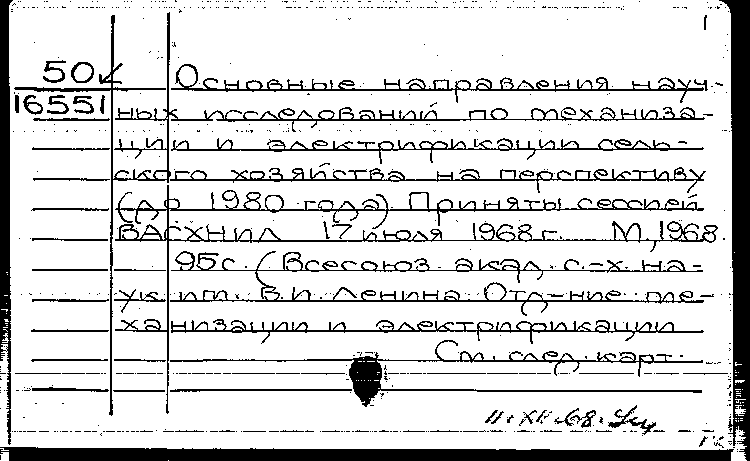 1
50
16551
Основные направления науч-
ных исследований по механиза-
ции и электрификации сель-
ского хозяйства на перспективу
(до 1980 года) Приняты сессией
ВАСХНИЛ 17 июля 1968 г. М., 1968.
95с. (Всесоюз. акад. с.-х. на-
ук им. В.И. Ленина. Отд-ние ме-
ханизации и электрификации
См. след. карт.
11.XII.68.